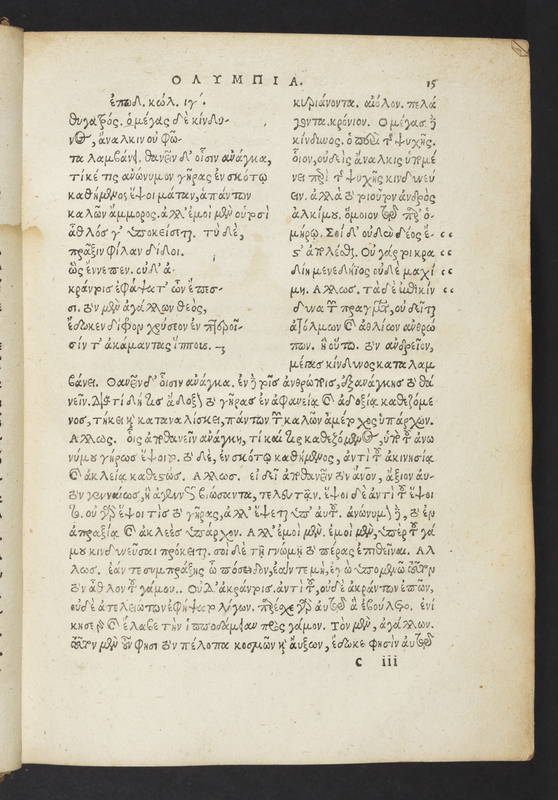 ΟΛΥΜΠΙΑ. 15
ἐπῳδ. κώλ. ιγ΄.
θυγατρός. ὁ μέγας δὲ κίνδυ-
νος, ἄναλκιν οὐ φῶ-
τα λαμβάνει. θανεῖν δ' οἷσιν ἀνάγκα,
τί κέ τις ἀνώνυμον γῆρας ἐν σκότῳ
καθήμενος ἕψοι μάταν, ἁπάντων
καλῶν ἄμμορος. ἀλλ' ἐμοὶ μὲν οὑτοσὶ
ἄθλός γ' ὑποκείσεται. τὺ δὲ,
πρᾶξιν φίλαν δίδοι.
ὣς ἔννεπεν. οὐδ' ἀ-
κράντοις ἐφάψατ' ὢν ἔπεσ-
σι. τὸν μὲν ἀγάλλων θεὸς,
ἔδωκεν δίφρον χρύσεον ἐν πτεροῖ-
σίν τ' ἀκάμαντας ἵππους.
κυριάνοντα. αἰόλον. πελά
γοντα. κρόνιον. Ὁ μέγας δὲ
κίνδυνος. ὁ περὶ τῆς ψυχῆς.
οἷον, οὐδεὶς ἄναλκις ὑπομέ
νει περὶ τῆς ψυχῆς κινδυνεύ
ειν. ἀλλὰ τοῦτο ἀνδρὸς
ἀλκίμου. ὅμοιον τῷ παρ' ὁ-
μήρῳ. Σοὶ δ' οὐδὲν δέος ἐ-
στ' ἀπελέθρ. Οὐ γάρ πικρα
δίη μενεδήϊος οὐδὲ μαχί
μη. Ἄλλως. τάδε
δυνα τῶν πραγμάτων, οὐ δεῖται
ἀτόλμων καὶ ἀθλίων ἀνθρώ
πων. ἢ οὕτω. τὸν ἀνδρεῖον,
μέγας κίνδυνος καταλαμ
βάνει. Θανεῖν δ' οἷσιν ἀνάγκα. ἐν ᾗ τοῖς ἀνθρώποις, ἐξανάγκης τὸ θα
νεῖν. διὰ τί δή τις ἀδόξως τὸ γῆρας ἐν ἀφανείᾳ καὶ ἀδοξίᾳ καθεζόμε
νος, τήκει καὶ καταναλίσκει, πάντων τῶν καλῶν ἀμέτοχος ὑπάρχων.
Ἄλλως. οἷς ἀποθανεῖν ἀνάγκη, τί καί τις καθεζόμενος, ὑπὸ τοῦ ἀνω
νύμου γήρως ἕψοιτο. τὸ δὲ, ἐν σκότῳ καθήμενος, ἀντὶ τοῦ ἀκινησίᾳ
καὶ ἀκλείᾳ καθεστώς. Ἄλλως. εἰ δεῖ ἀποθανεῖν τὸν ἄνθρωπον, ἄξιον αὐ-
τὸν γενναίως, ἢ ἀγεννῶς βιώσαντα, τελευτᾶν. ἕψοι δὲ ἀντὶ τοῦ ἕψοι
το. οὐ γὰρ ἕψοι τις τὸ γῆρας, ἀλλ' ἕψεται ὑπ' αὐτοῦ. ἀνώνυμον δὲ, τὸ ἐν
ἀπραξίᾳ καὶ ἀκλεὲς ὑπάρχον. Ἀλλ' ἐμοὶ μὲν. ἐμοὶ μὲν, ὑπὲρ τοῦ γά
μου κινδυνεῦσαι πρόκειται. σοὶ δὲ τῇ γνώμῃ τὸ πέρας ἐπιθεῖναι. Ἀλ
λως. ἐάν τε συμπράξῃς ὦ πόσειδον, ἐάν τε μὴ, ἐγὼ ὑπομενῶ τοῦτον
τὸν ἆθλον τοῦ γάμου. Οὐδ' ἀκράντοις. ἀντὶ τοῦ, οὐδὲ ἀκράντων ἐπῶν,
οὐδὲ ἀτελειώτων ἐφήψατο λόγων. παρέσχε γὰρ αὐτῷ ἃ ἐβούλετο. ἐνί
κησε καὶ ἔλαβε τὴν ἱπποδάμειαν πρὸς γάμον. Τὸν μὲν, ἀγάλλων.
τοῦτον μὲν οὖν φησὶ τὸν πέλοπα κοσμῶν καὶ αὔξων, ἔδωκε φησὶν αὐτῷ
C iii